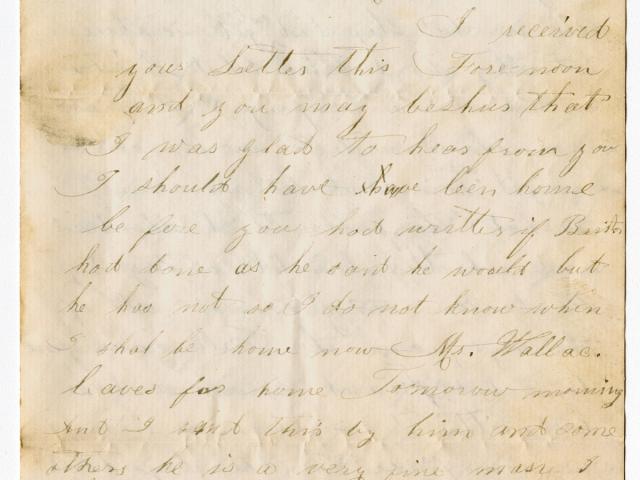 I received
your Letter this Forenoon
and you may be shur that
I was glad to hear from you
I should have have been home
be fore you had written if
had done as he said he would but
he has not so I do not know when
I shal be home now Mr. Wallac.
leaves for home Tomorow morning
and I send this by him and some
others he is a very fine man I